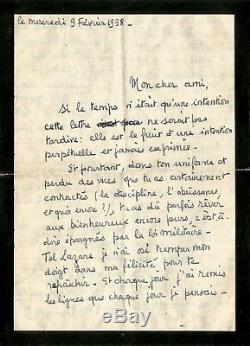 le mercredi 9 Février 1938 -
Mon cher ami,
Si le temps n'était qu'une intention
cette lettre ne serait pas
tardive : elle est le fruit d'une intention
perpétuelle et jamais exprimée.
Et pourtant, dans ton uniforme et
perdu des vices que tu as certainement
contractés (la discipline, l'obéissance,
et quoi encore ?), tu as dû parfois rêver
aux bienheureux encore purs, c'est à
dire épargnés par la loi militaire.
Tel Lazare je n'ai osé tremper mon
doigt dans ma félicité pour te
rafraîchir. Et chaque jour j'ai remis
les lignes que chaque jour je pensais -